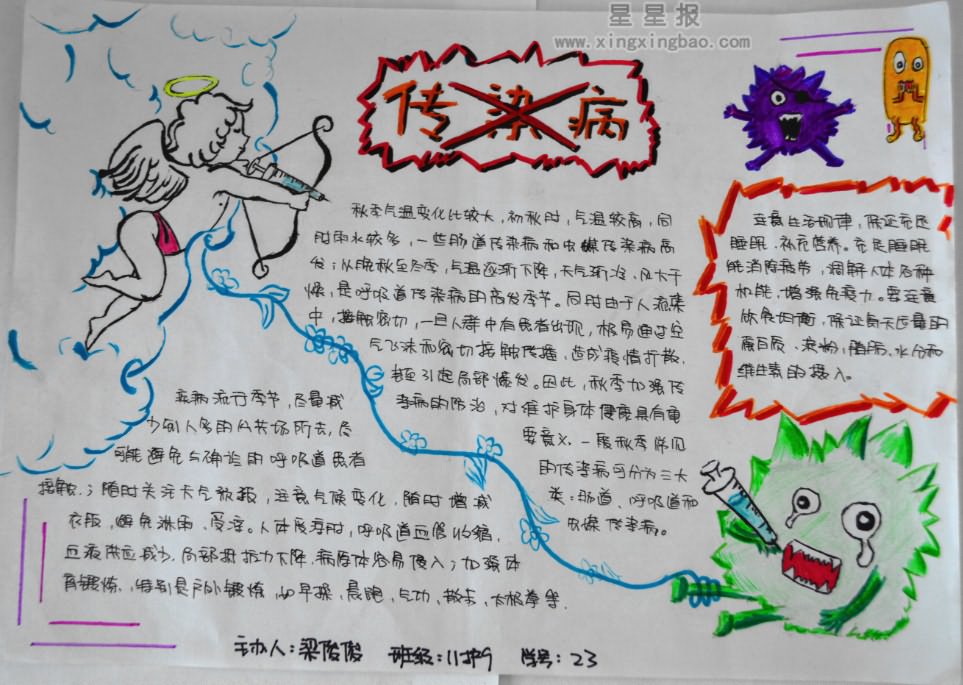 星星报
www.xingxingbao.com
传染病
秋季气温变化比较大,初秋时,气温较高,同
时雨水较多,一些肠道传染病和虫媒传染病高
发;从晚秋至冬季,气温逐渐下降,天气渐冷,风大干
燥,是呼吸道传染病的高发季节。同时由于人流集
中,接触密切,一旦人群中有患者出现,极易通过空
气飞沫和密切接触传播,造成疫情扩散,
甚至引起局部爆发。因此,秋季加强传
染病的防治,对维护身体健康具有重
要意义。一般秋季常见
的传染病可分为三大
类:肠道、呼吸道和
虫媒传染病。
注意生活规律,保证充足
睡眠,补充营养。充足睡眠
能消除疲劳,调解人体各种
机能,增强免疫力。要注意
饮食均衡,保证每天适量的
蛋白质、淀粉,脂肪,水分和
维生素的摄入。
疾病流行季节,尽量减
少到人多的公共场所去,尽
可能避免与确诊的呼吸道患者
接触.;随时关注天气预报,注意气候变化,随时增减
衣服,避免淋雨、受凉。人体受凉时,呼吸道血管收缩,
血液供应减少,局部抵抗力下降,病原体容易侵入;加强体
育锻炼,特别是户外锻炼,如早操,晨跑,气功,散步,太极拳等.
主办人:梁俊俊 班级:11护9 学号:23